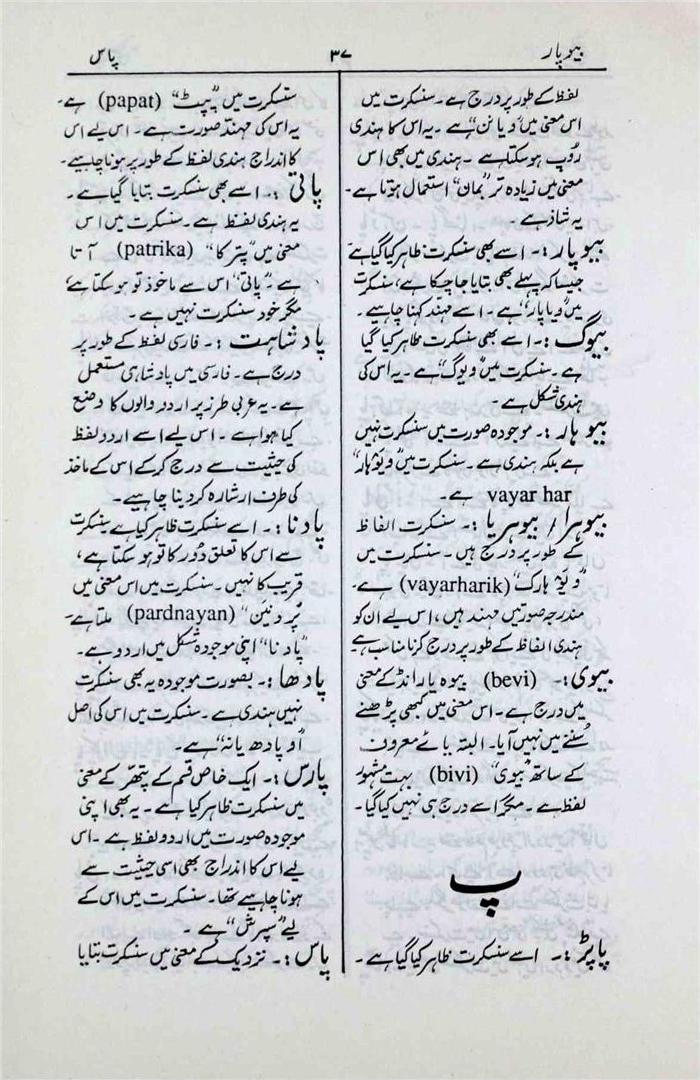 بیوپار
۳۷
پاس
لفظ کے طور پر درج ہے۔ سنسکرت میں
اس معنی میں "ویا نن" ہے۔ یہ اس کا ہندی
رُوپ ہو سکتا ہے۔ ہندی میں بھی اس
معنی میں زیادہ تر "بمان" استعمال ہوتا ہے۔
یہ شاذ ہے۔
بیوپار:۔ اسے بھی سنسکرت ظاہر کیا گیا ہے
جیسا کہ پہلے بھی بتایا جا چکا ہے، سنسکرت
میں "ویاپار" ہے۔ اسے مہند کہنا چاہیے۔
بیوگ:۔ اسے بھی سنسکرت ظاہر کیا گیا
ہے۔ سنسکرت میں "ویوگ" ہے۔ یہ اس کی
ہندی شکل ہے۔
بیوہار:۔ موجودہ صورت میں سنسکرت نہیں
ہے بلکہ ہندی ہے۔ سنسکرت میں "ویَوْہار"
vayar har ہے۔
بیوہرا/ بیوہریا:۔ سنسکرت الفاظ
کے طور پر درج ہیں۔ سنسکرت میں
"ویَوْہارک" (vayarharik) ہے۔
مندرجہ صورتیں مہند ہیں، اس لیے ان کو
ہندی الفاظ کے طور پر درج کرنا مناسب ہے۔
بیوی:۔ (bevi) بیوہ یا رانڈ کے معنی
میں درج ہے۔ اس معنی میں کبھی پڑھنے
سُننے میں نہیں آیا۔ البتہ یائے معروف
کے ساتھ "بیوی" (bivi) بہت مشہور
لفظ ہے۔ مگر اسے درج ہی نہیں کیا گیا۔
پ
پاپڑ:۔ اسے سنسکرت ظاہر کیا گیا ہے۔
سنسکرت میں "پپٹ" (papat) ہے۔
یہ اس کی مہند صورت ہے۔ اس لیے اس
کا اندراج ہندی لفظ کے طور پر ہونا چاہیے۔
پاتی:۔ اسے بھی سنسکرت بتایا گیا ہے۔
یہ ہندی لفظ ہے۔ سنسکرت میں اس
معنی میں "پترکا" (patrika) آتا
ہے۔ "پاتی" اس سے ماخوذ تو ہو سکتا ہے،
مگر خود سنسکرت نہیں ہے۔
پادشاہت:۔ فارسی لفظ کے طور پر
درج ہے۔ فارسی میں پادشاہی مستعمل
ہے۔ یہ عربی طرز پر اردو والوں کا وضع
کیا ہوا ہے۔ اس لیے اسے اردو لفظ
کی حیثیت سے درج کر کے اس کے ماخذ
کی طرف ارشارہ کر دینا چاہیے۔
پادنا:۔ اسے سنسکرت ظاہر کیا ہے سنسکرت
سے اس کا تعلق دُور کا تو ہو سکتا ہے،
قریب کا نہیں۔ سنسکرت میں اس معنی میں
"پرونین" (pardnayan) ملتا ہے۔
"پادنا" اپنی موجودہ شکل میں اردو ہے۔
پادھا:۔ بصورت موجودہ یہ بھی سنسکرت
نہیں ہندی ہے۔ سنسکرت میں اس کی اصل
"اُوپادھیانہ" ہے۔
پارس:۔ ایک خاص قسم کے پتھر کے معنی
میں سنسکرت ظاہر کیا ہے۔ یہ بھی اپنی
موجودہ صورت میں اردو لفظ ہے۔ اس
لیے اس کا اندراج بھی اسی حیثیت سے
ہونا چاہیے تھا۔ سنسکرت میں اس کے
لیے "سپرش" ہے۔
پاس:۔ نزدیک کے معنی میں سنسکرت بتایا